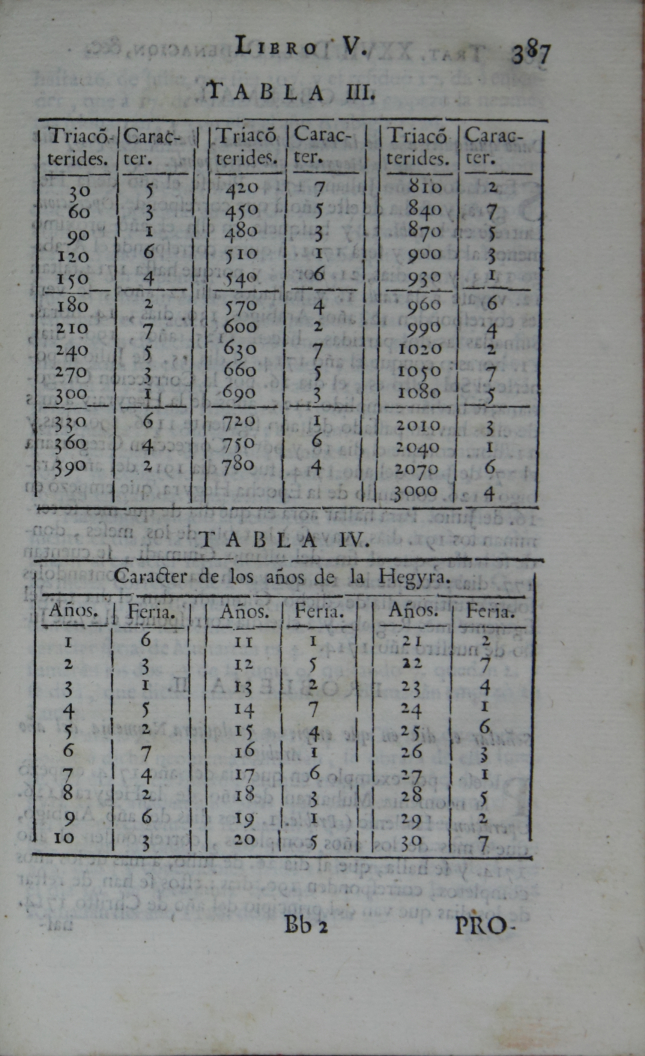 LIBRO V. 387
TABLA III.
Triacõ- Carac- Triacõ Carac- Triacõ Carac-
terides. ter. terides. ter. terides. ter.
30 5 420 7 810 2
60 3 450 5 840 7
90 1 480 3 870 5
120 6 510 1 900 3
150 4 540 6 930 1
180 2 570 4 960 6
210 7 600 2 990 4
240 5 630 7 1020 2
270 3 660 5 1050 7
300 1 690 3 1080 5
330 6 720 1 2010 3
360 4 750 6 2040 1
390 2 780 4 2070 6
3000 4
TABLA IV.
Caracter de los años de la Hegyra.
Años. Feria. Años. Feria. Años. Feria.
1 6 11 1 21 2
2 3 12 5 22 7
3 1 13 2 23 4
4 5 14 7 24 1
5 2 15 4 25 6
6 7 16 1 26 3
7 4 17 6 27 1
8 2 18 3 28 5
9 6 19 1 29 2
10 3 20 5 30 7
Bb 2 PRO-